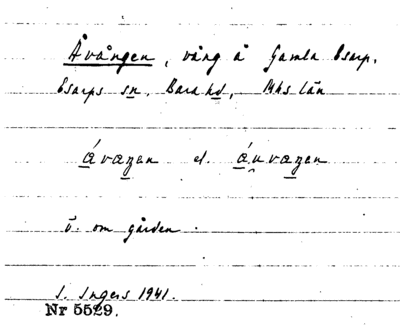 Åvången, vång å Gamla Esarp,
Esarps sn, Bara hd, Mhs län
ávæŋen el. áu̯væŋen
v. om gården.
I. Ingers 1941.
Nr 5529.